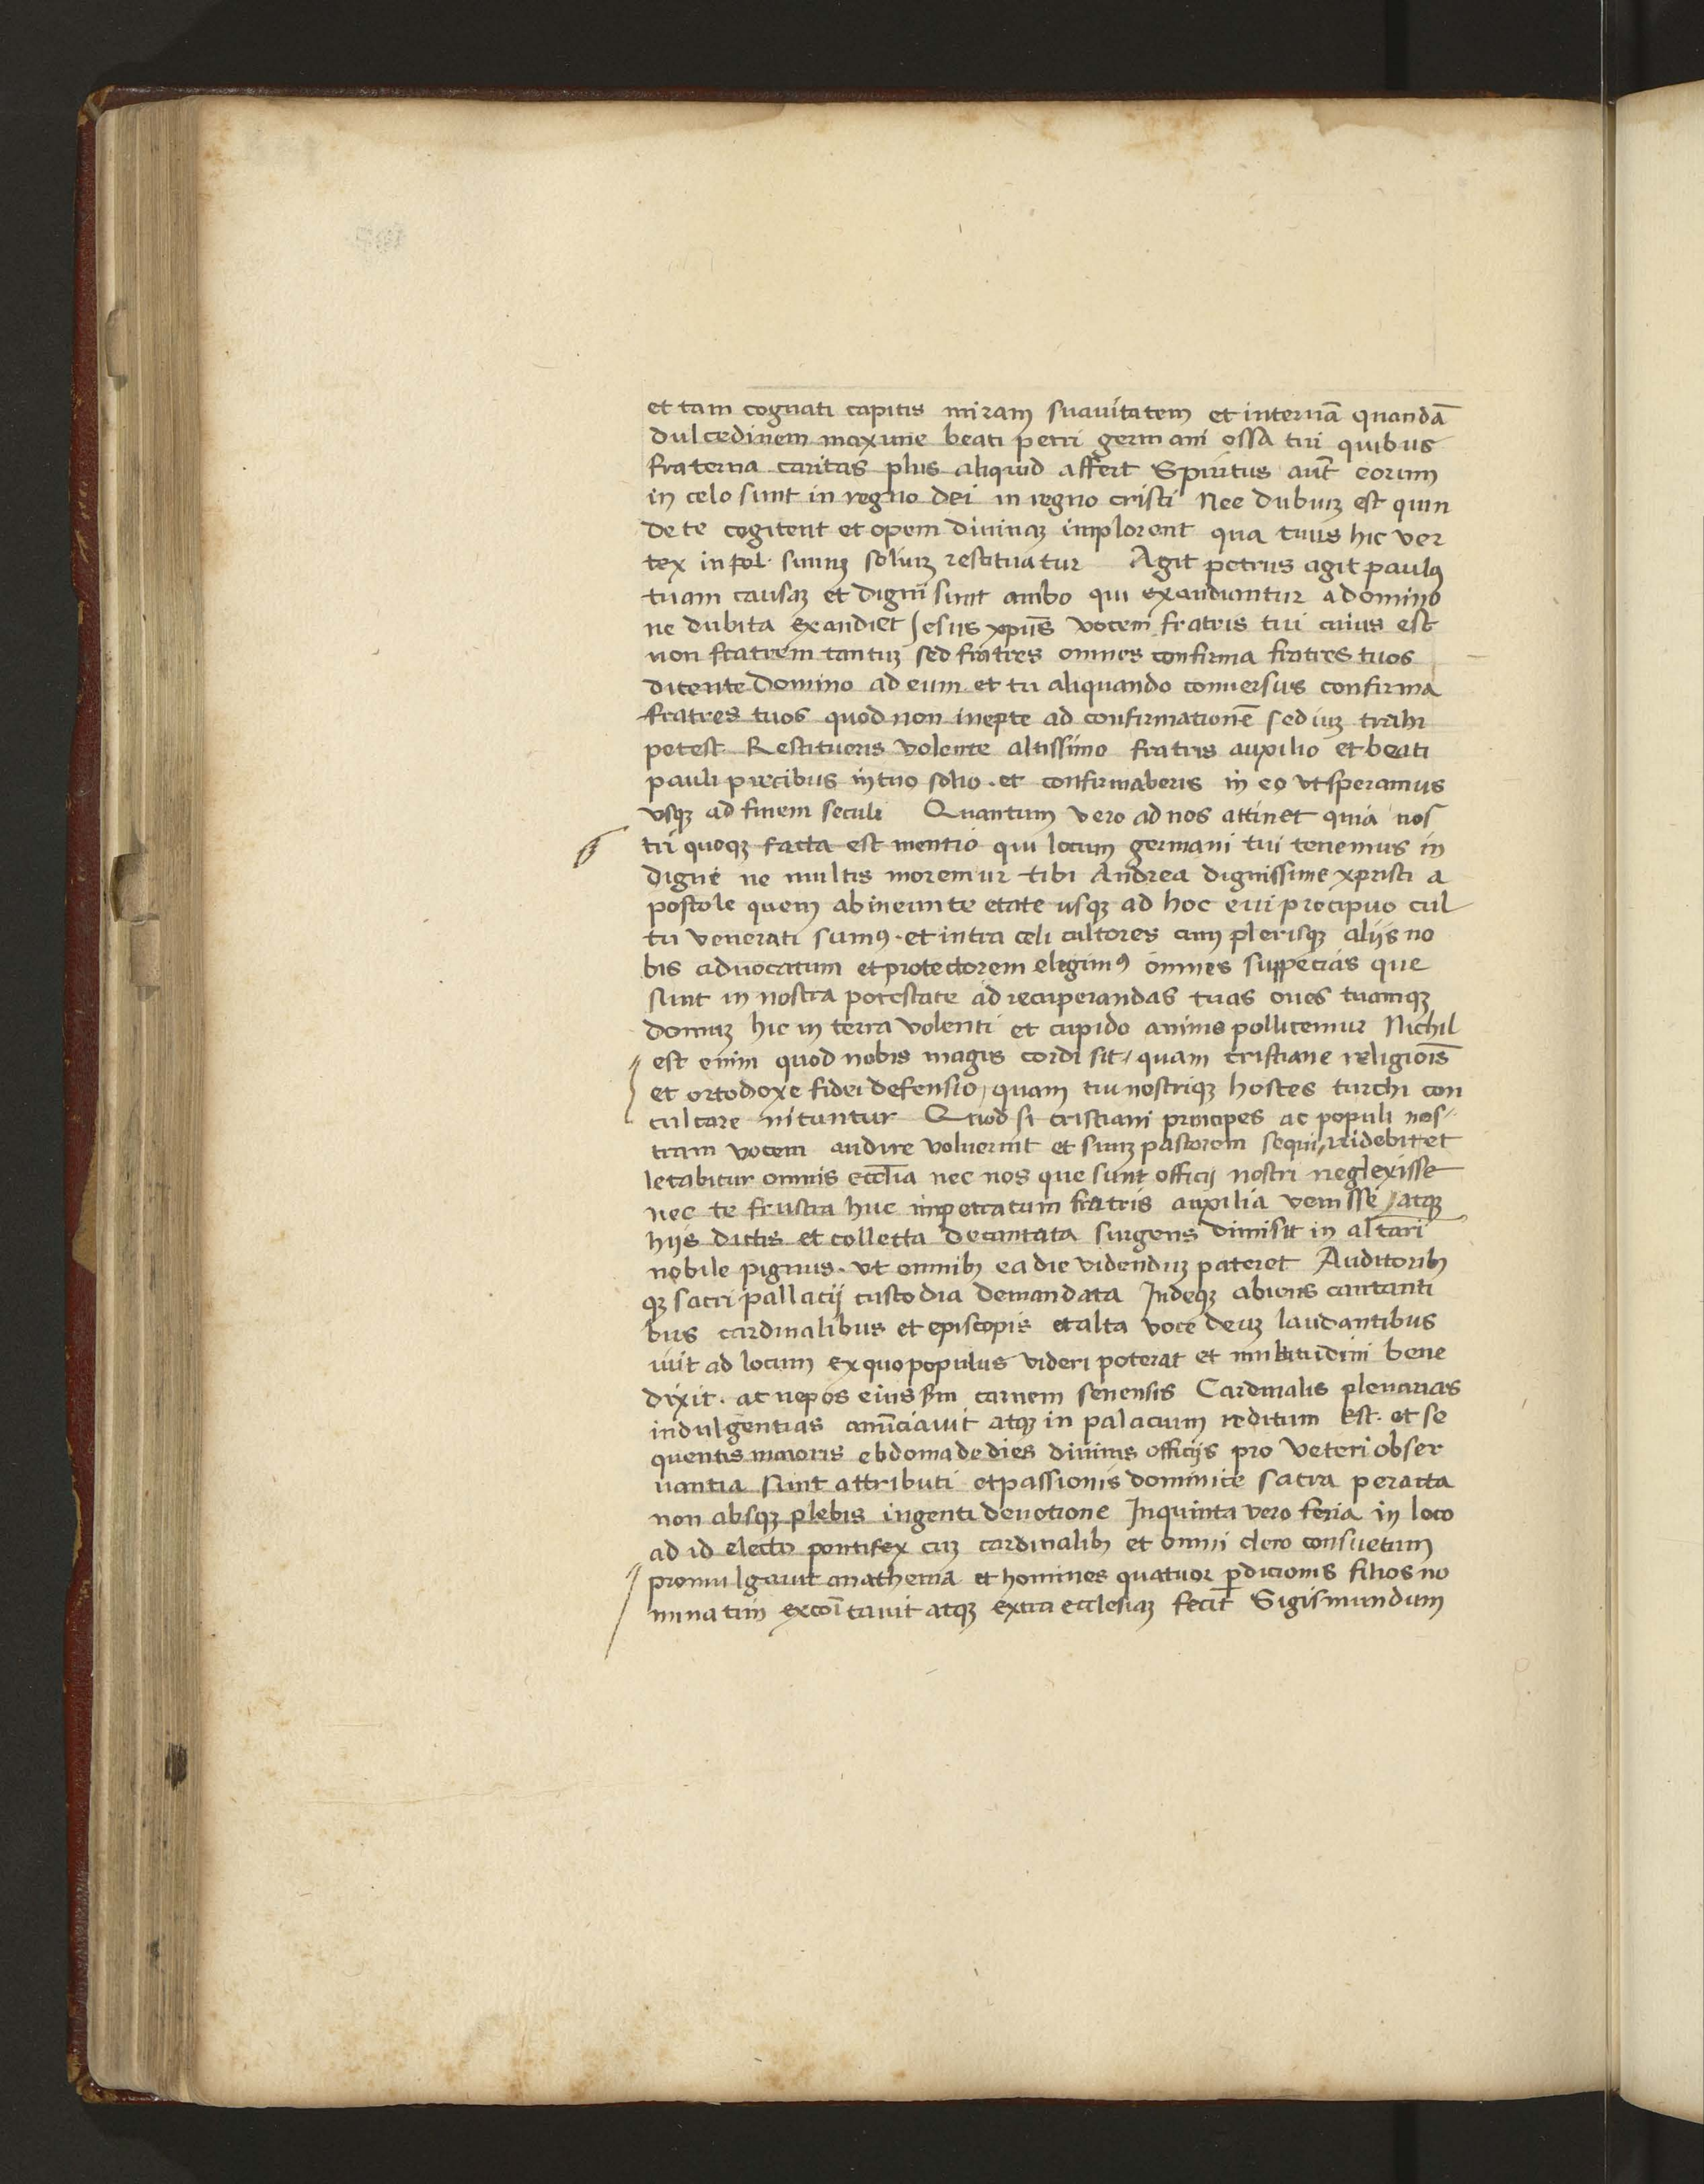 et tam cognati capitis miram suavitatem et internã quandã
dulcedinem maxime beati petri germani ossa tui quibus
fraterna caritas plus aliquid affert Spiritus aut̃ eorum
in celo sunt in regno dei in regno cristi Nec dubiuʒ est quin
de te cogitent et opem divinaʒ implorent qua tuus hic ver
tex in suum soliuʒ restituatur Agit petrus agit paulꝰ
tuam causaʒ et digni sunt ambo qui exaudiantur a domino
ne dubita exaudiet Jesus xpūs vocem fratris tui cuius est
non fratrem tantuʒ sed fratres omnes confirma fratres tuos
dicente domino ad eum et tu aliquando conversus confirma
fratres tuos quod non inepte ad confirmationē sediuʒ trahi
potest Restitueris volente altissimo fratris auxilio et beati
pauli precibus in tuo solio. et confirmaberis in eo ut speramus
usqʒ ad finem seculi Quantum vero ad nos attinet quia nos
tri quoqʒ facta est mentio qui locum germani tui tenemus in
digne ne multis moremur tibi Andrea dignissime xpristi a
postole quem ab ineunte etate usqʒ ad hoc evi precipuo cul
tu venerati sumꝰ. et intra celi cultores cum plerisqʒ aliis no
bis advocatum et protectorem elegimꝰ omnes suppecias que
sunt in nostra potestate ad recuperandas tuas oves tuamqʒ
domuʒ hic in terra volenti et cupido animo pollicemur Nichil
est enim quod nobis magis cordi sit / quam cristiane religiois̄
et ortodoxe fidei defensio / quam tui nostriqʒ hostes turchi con
culcare nituntur Quod si cristiani principes ac populi nos-
tram vocem audire voluerint et suuʒ pastorem sequi / ridebit et
letabitur omnis eccl̄ia nec nos que sunt officij nostri neglexisse
nec te frustra huc impetratum fratris auxilia venisse / atqʒ
hijs dictis et collecta decantata surgens dimisit in altari
nobile pignus. ut omnibꝫ ea die videnduʒ pateret Auditoribꝫ
qʒ sacri pallacij custodia demandata Indeqʒ abiens cantanti
bus cardinalibus et episcopis et alta voce deuʒ laudantibus
ivit ad locum ex quo populus videri poterat et multitudini bene
dixit. ac nepos eius scm̄ carnem senensis Cardinalis plenarias
indulgentias anũciavit atqʒ in palacium reditum est. et se
quentis maioris ebdomade dies divinis officijs pro veteri obser
vantia sunt attributi et passionis dominice sacra peracta
non absqʒ plebis ingenti devotione In quinta vero feria in loco
ad id electo pontifex cuʒ cardinalibꝫ et omni clero consuetum
promulgavit anathema et homines quatuor ꝑdicionis filios no
minatim excoītavit atqʒ extra ecclesiaʒ fecit Sigismundum